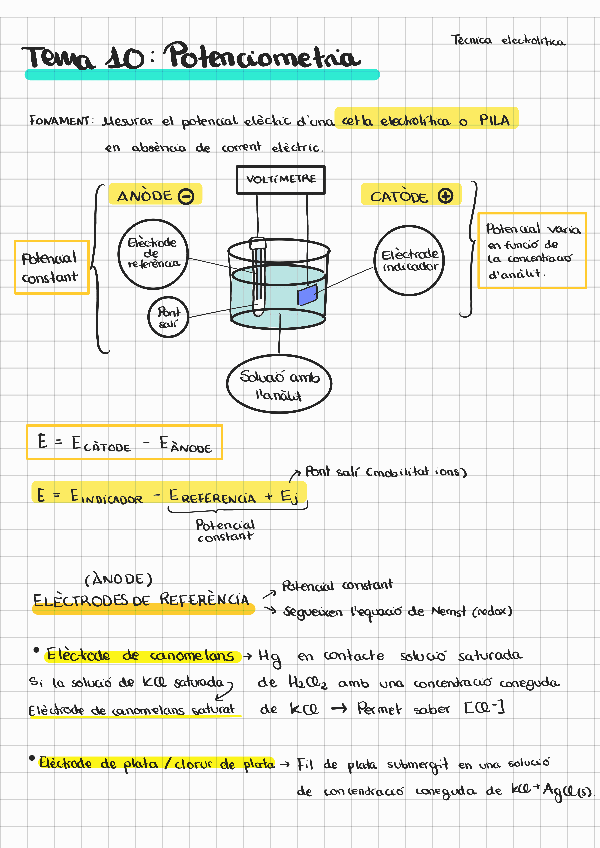 Tècnica electrolítica
Tema 10: Potenciometria
FONAMENT: Mesurar el potencial elèctric d'una cel·la electrolítica o PILA
en absència de corrent elèctric.
VOLTÍMETRE
ANÒDE ⊖
CATÒDE ⊕
Potencial
constant
Elèctrode
de
referència
Pont
salí
Elèctrode
indicador
Potencial varia
en funció de
la concentració
d'anàlit.
Solució amb
l'anàlit
E = E CÀTODE - E ÀNODE
→ Pont salí (mobilitat ions)
E = E INDICADOR - E REFERENCIA + Ej
Potencial
constant
(ÀNODE)
ELÈCTRODES DE REFERÈNCIA
→ Potencial constant
→ Segueixen l'equació de Nernst (redox)
• Elèctrode de canomelans → Hg en contacte solució saturada
Si la solució de KCl saturada de H2Cl2 amb una concentració coneguda
Elèctrode de canomelans saturat de KCl → Permet saber [Cl-]
• Elèctrode de plata / clorur de plata → Fil de plata submergit en una solució
de concentració coneguda de KCl + AgCl(s).